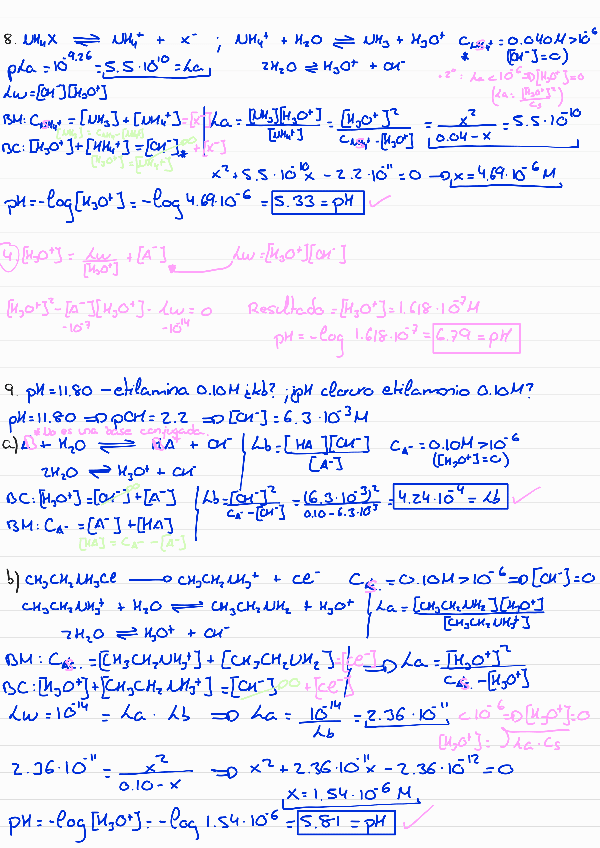 8. NH₄X ⇌ NH₄⁺ + X⁻ ; NH₄⁺ + H₂O ⇌ NH₃ + H₃O⁺ C_NH₄⁺ = 0.040M > 10⁻⁶
* ([OH⁻]=0)
pka = 10⁻⁹·²⁶ = 5.5·10⁻¹⁰ = ka 2H₂O ⇌ H₃O⁺ + OH⁻
· 2º: ka < 10⁻⁶ ⇒ [H₃O⁺]=0
(ka = [H₃O⁺]²/Cs)
kw = [OH⁻][H₃O⁺]
BM: C_NH₄⁺ = [NH₃] + [NH₄⁺] = [X⁻] ka = [NH₃][H₃O⁺]/[NH₄⁺] = [H₃O⁺]²/(C_NH₄⁺ - [H₃O⁺]) = x²/(0.04 - x) = 5.5·10⁻¹⁰
BC: [H₃O⁺] + [NH₄⁺] = [OH⁻]* + [X⁻]
[H₃O⁺] = [NH₃]
x² + 5.5·10⁻¹⁰x - 2.2·10⁻¹¹ = 0 → x = 4.69·10⁻⁶ M
pH = -log[H₃O⁺] = -log 4.69·10⁻⁶ = 5.33 = pH ✓
4 [H₃O⁺] = kw/[H₃O⁺] + [A⁻] kw = [H₃O⁺][OH⁻]
[H₃O⁺]² - [A⁻][H₃O⁺] - kw = 0 Resultado = [H₃O⁺] = 1.618·10⁻⁷ M
-10⁻⁷ -10⁻¹⁴ pH = -log 1.618·10⁻⁷ = 6.79 = pH
9. pH = 11.80 - etilamina 0.10M ¿kb? ; ¿pH cloruro etilamonio 0.10M?
pH = 11.80 ⇒ pOH = 2.2 ⇒ [OH⁻] = 6.3·10⁻³ M
* No es una base conjugada.
a) A + H₂O ⇌ HA⁺ + OH⁻ kb = [HA][OH⁻]/[A⁻] C_A⁻ = 0.10M > 10⁻⁶
2H₂O ⇌ H₃O⁺ + OH⁻ ([H₃O⁺]=0)
BC: [H₃O⁺] = [OH⁻] + [A⁻] kb = [OH⁻]²/(C_A⁻ - [OH⁻]) = (6.3·10⁻³)²/(0.10 - 6.3·10⁻³) = 4.24·10⁻⁴ = kb ✓
BM: C_A⁻ = [A⁻] + [HA]
[HA] = C_A⁻ - [A⁻]
b) CH₃CH₂NH₃Cl → CH₃CH₂NH₃⁺ + Cl⁻ = 0.10M > 10⁻⁶ ⇒ [OH⁻]=0
CH₃CH₂NH₃⁺ + H₂O ⇌ CH₃CH₂NH₂ + H₃O⁺ ka = [CH₃CH₂NH₂][H₃O⁺]/[CH₃CH₂NH₃⁺]
2H₂O ⇌ H₃O⁺ + OH⁻
BM: = [CH₃CH₂NH₃⁺] + [CH₃CH₂NH₂] = [Cl⁻] ⇒ ka = [H₃O⁺]²/( - [H₃O⁺])
BC: [H₃O⁺] + [CH₃CH₂NH₃⁺] = [OH⁻] + [Cl⁻]
kw = 10⁻¹⁴ = ka · kb ⇒ ka = 10⁻¹⁴/kb = 2.36·10⁻¹¹ < 10⁻⁶ ⇒ [H₃O⁺]=0
[H₃O⁺] = √(ka·Cs)
2.36·10⁻¹¹ = x²/(0.10 - x) ⇒ x² + 2.36·10⁻¹¹x - 2.36·10⁻¹² = 0
x = 1.54·10⁻⁶ M
pH = -log[H₃O⁺] = -log 1.54·10⁻⁶ = 5.81 = pH ✓